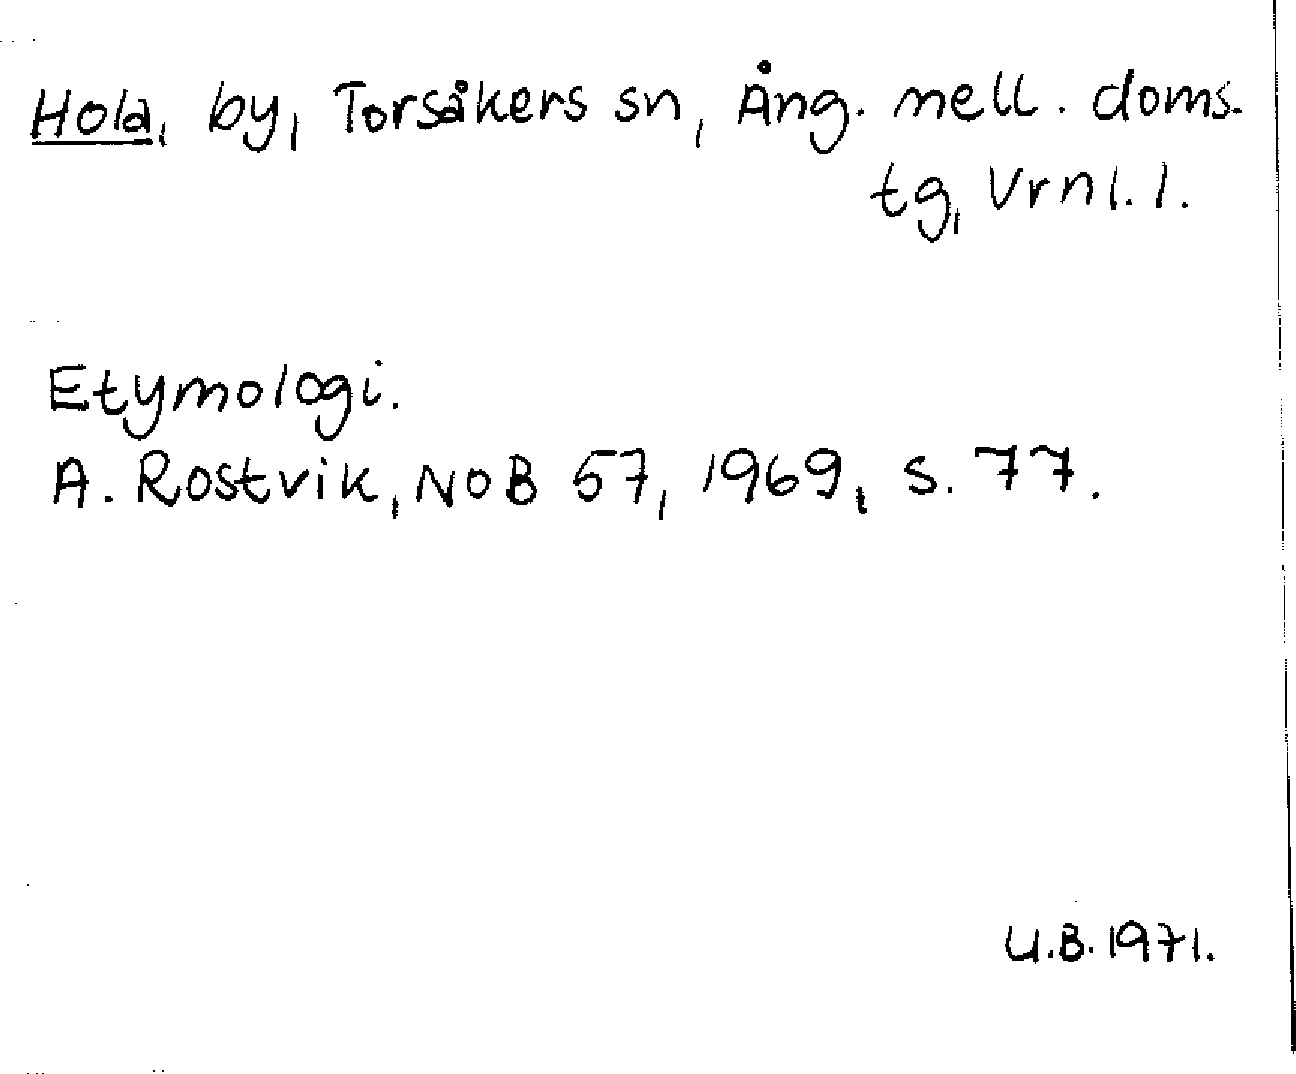 Hola, by, Torsåkers sn, Ång. mell. doms.
tg, Vrnl. l.
Etymologi.
A. Rostvik, NoB 57, 1969, s. 77.
U.B. 1971.